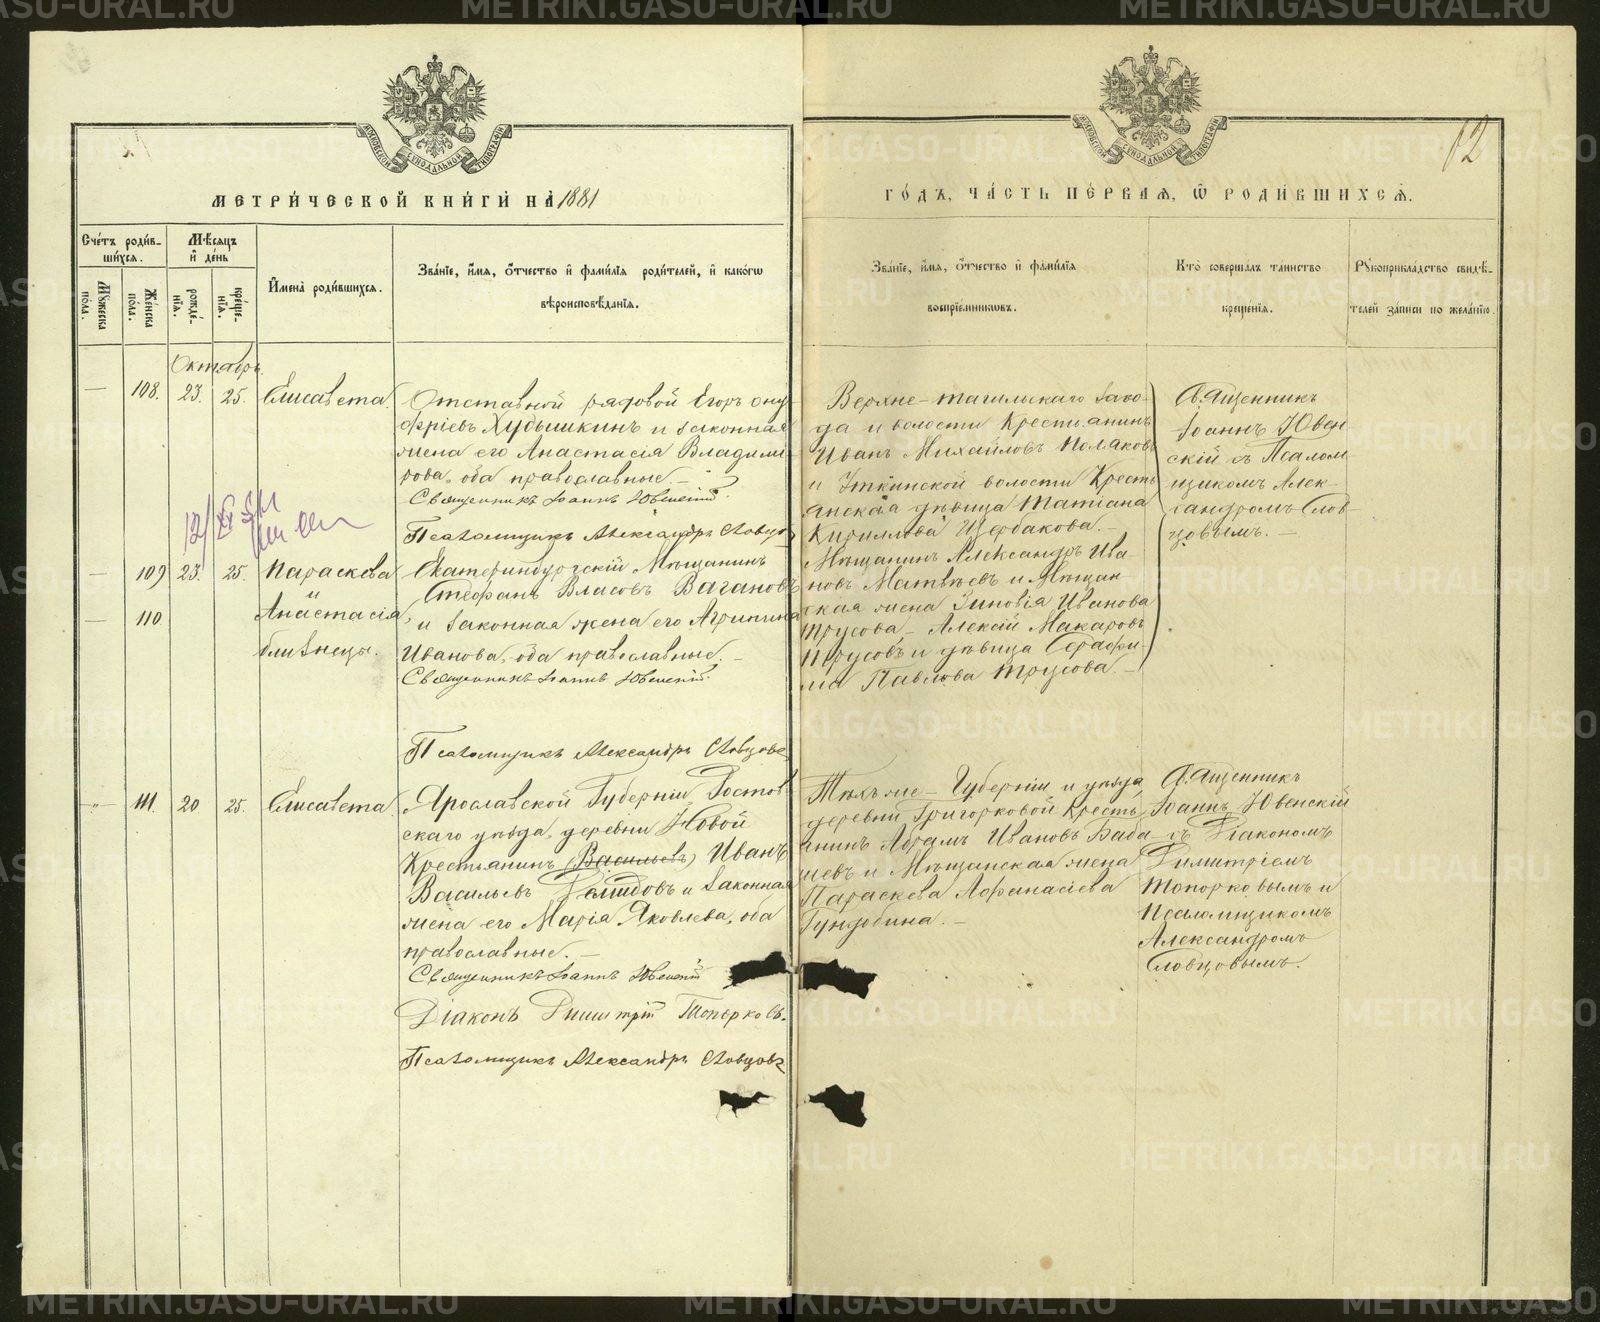 METRIKI.GASO-URAL.RU
МОСКОВСКОЙ СѴНОДАЛЬНОЙ ТИПОГРАФІИ
МОСКОВСКОЙ СѴНОДАЛЬНОЙ ТИПОГРАФІИ
12
МЕТРИ́ЧЕСКОЙ КНИ́ГИ НА̀ 1881
ГО́ДЪ, ЧА́СТЬ ПЕ́РВАЯ, Ѡ҆ РОДИ́ВШИХСЯ.
Сче́тъ роди́в-
ши́хся.
Мꙋжеска
по́ла.
Же́нска
по́ла.
Мѣ́сяцъ
и҆ де́нь
рожде́-
нїя.
креще́-
нїя.
И҆мена̀ роди́вшихся.
Зва́нїе, и҆́мя, ѻ҆́тчество и҆ фами́лїя роди́телей, и҆ како́гѡ
вѣроисповѣ́данїя.
Зва́нїе, и҆́мя, ѻ҆́тчество и҆ фами́лїя
воспрїе́мникѡвъ.
Кто̀ соверша́лъ та́инство
креще́нїя.
Рꙋкоприкла́дство свидѣ́-
телей за́писи по жела́нїю.
Октябрь.
— 108. 23. 25. Елисавета.
Отставной рядовой Егоръ Ону
фріевъ Худышкинъ и законная
жена его Анастасія Владими
рова, оба православные. —
Священникъ Іоаннъ Ювенскій.
Псаломщикъ Александръ Словцовъ
Верхне-тагильскаго заво-
да и волости Крестьянинъ
Иванъ Михайловъ Поляковъ
и Уткинской волости Кресть
янская дѣвица Татіана
Кириллова Щербакова. —
Священникъ
Іоаннъ Ювен
скій съ Псалом
щикомъ Алек-
сандромъ Слов-
цовымъ. —
— 109 23. 25. Параскева
и
— 110 Анастасія,
близнецы.
Екатеринбургскій Мѣщанинъ
Стефанъ Власовъ Вагановъ
и законная жена его Агрипина
Иванова, оба православные. —
Священникъ Іоаннъ Ювенскій.
Псаломщикъ Александръ Словцовъ
Мѣщанинъ Александръ Ива-
новъ Матвѣевъ и Мѣщан-
ская жена Зиновія Иванова
Трусова — Алексій Макаровъ
Трусовъ и дѣвица Серафи-
ма Павлова Трусова. —
— 111. 20 25. Елисавета.
Ярославской Губерніи Ростов
скаго уѣзда, деревни Новой
Крестьянинъ (Васильевъ) Иванъ
Васильевъ Демидовъ и законная
жена его Марія Яковлева, оба
православные. —
Священникъ Іоаннъ Ювенскій
Діаконъ Димитрій Топорковъ.
Псаломщикъ Александръ Словцовъ
Тѣхъ же — Губерніи и уѣзда
деревни Григорковой Кресть
янинъ Абрамъ Ивановъ Баба
шевъ и Мѣщанская жена
Параскева Афанасіева
Гундобина. —
Священникъ
Іоаннъ Ювенскій
съ Діакономъ
Димитріемъ
Топорковымъ и
Псаломщикомъ
Александромъ
Словцовымъ.